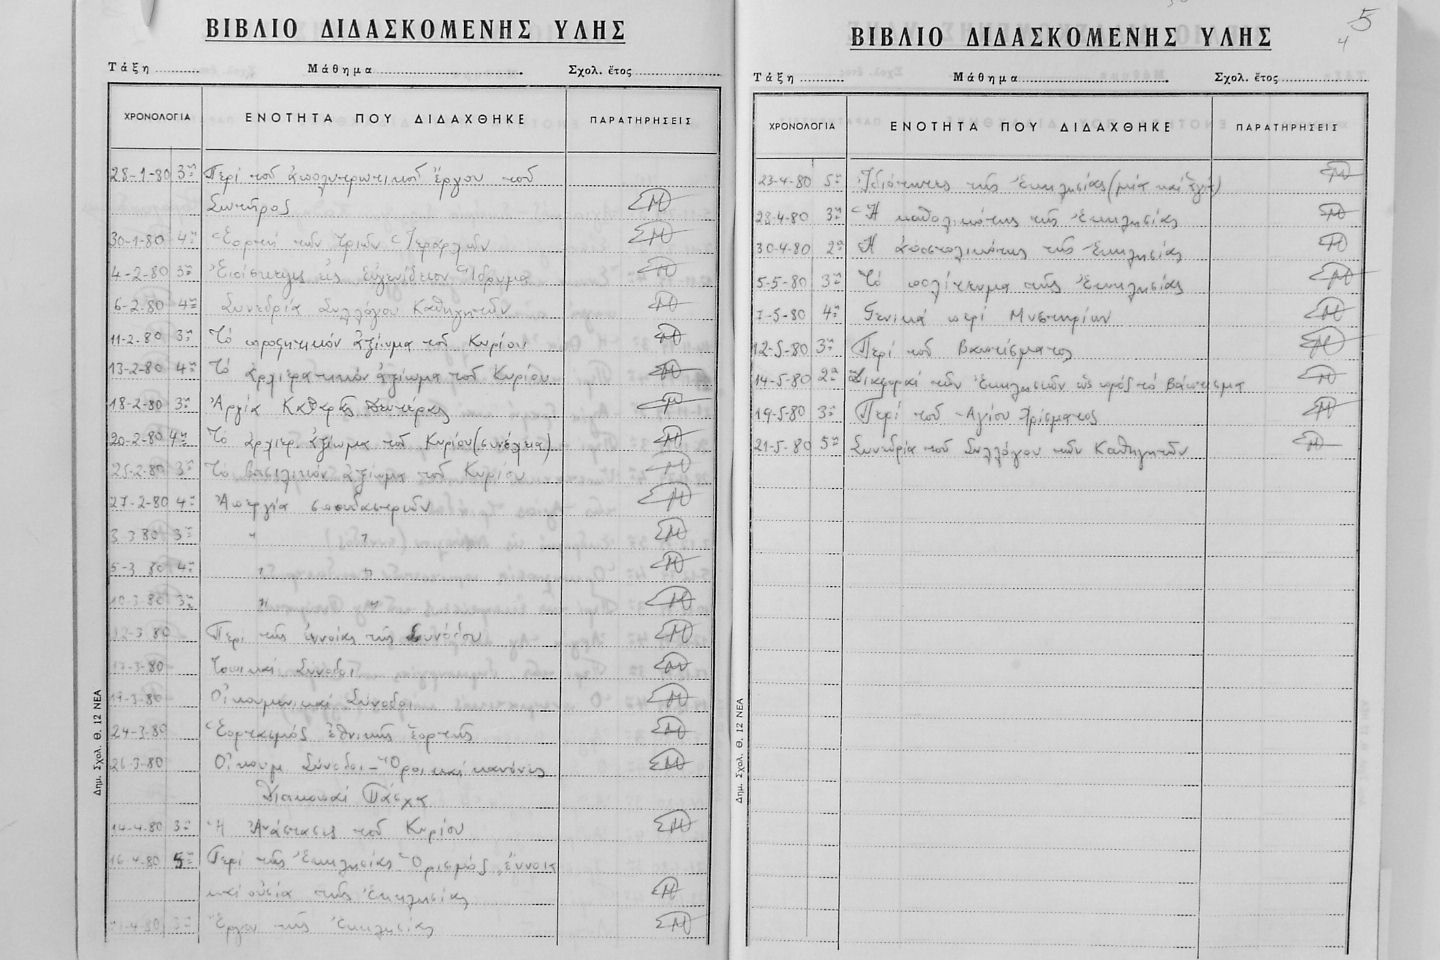 ΒΙΒΛΙΟ ΔΙΔΑΣΚΟΜΕΝΗΣ ΥΛΗΣ
Τάξη Μάθημα Σχολ. ἔτος
ΧΡΟΝΟΛΟΓΙΑ ΕΝΟΤΗΤΑ ΠΟΥ ΔΙΔΑΧΘΗΚΕ ΠΑΡΑΤΗΡΗΣΕΙΣ
28-1-80 3η Περί τοῦ ἀπολυτρωτικοῦ ἔργου τοῦ
Σωτῆρος ΣΜ
30-1-80 4η Ἑορτή τῶν Τριῶν Ἱεραρχῶν ΣΜ
4-2-80 3η εἰς Εὐγενίδειον Ἵδρυμα ΣΜ
6-2-80 4η Συνεδρία Συλλόγου Καθηγητῶν ΣΜ
11-2-80 3η Τό προφητικόν ἀξίωμα τοῦ Κυρίου ΣΜ
13-2-80 4η Τό ἀρχιερατικόν ἀξίωμα τοῦ Κυρίου ΣΜ
18-2-80 3η Ἀργία Καθαρᾶς Δευτέρας ΣΜ
20-2-80 4η Τό ἀρχιερ. ἀξίωμα τοῦ Κυρίου (συνέχεια) ΣΜ
25-2-80 3η Τό βασιλικόν ἀξίωμα τοῦ Κυρίου ΣΜ
27-2-80 4η Ἀπεργία σπουδαστριῶν ΣΜ
3-3-80 3η " " ΣΜ
5-3-80 4η " " ΣΜ
10-3-80 3η " " ΣΜ
12-3-80 Περί τῆς ἐννοίας τῆς Συνόδου ΣΜ
17-3-80 Τοπικαί Σύνοδοι ΣΜ
19-3-80 Οἰκουμενικαί Σύνοδοι ΣΜ
24-3-80 Ἑορτασμός ἐθνικῆς ἑορτῆς ΣΜ
26-3-80 Οἰκουμ. Σύνοδοι - Ὅροι καί κανόνες ΣΜ
Διακοπαί Πάσχα
14-4-80 3η Ἡ Ἀνάστασις τοῦ Κυρίου ΣΜ
16-4-80 5η Περί τῆς Ἐκκλησίας Ὁρισμός, ἔννοια
καί οὐσία τῆς Ἐκκλησίας ΣΜ
21-4-80 3η Ἔργον τῆς Ἐκκλησίας ΣΜ
Δημ. Σχολ. Θ. 12 ΝΕΑ
5
4
ΒΙΒΛΙΟ ΔΙΔΑΣΚΟΜΕΝΗΣ ΥΛΗΣ
Τάξη Μάθημα Σχολ. ἔτος
ΧΡΟΝΟΛΟΓΙΑ ΕΝΟΤΗΤΑ ΠΟΥ ΔΙΔΑΧΘΗΚΕ ΠΑΡΑΤΗΡΗΣΕΙΣ
23-4-80 5η Ἰδιότητες τῆς Ἐκκλησίας (μία καί ἁγία) ΣΜ
28-4-80 3η Ἡ καθολικότης τῆς Ἐκκλησίας ΣΜ
30-4-80 2α Ἡ ἀποστολικότης τῆς Ἐκκλησίας ΣΜ
5-5-80 3η Τό πολίτευμα τῆς Ἐκκλησίας ΣΜ
7-5-80 4η Γενικά περί Μυστηρίων ΣΜ
12-5-80 3η Περί τοῦ Βαπτίσματος ΣΜ
14-5-80 2α Διαφοραί τῶν Ἐκκλησιῶν ὡς πρός τό βάπτισμα ΣΜ
19-5-80 3η Περί τοῦ Ἁγίου Χρίσματος ΣΜ
21-5-80 5η Συνεδρία τοῦ Συλλόγου τῶν Καθηγητῶν ΣΜ
Δημ. Σχολ. Θ. 12 ΝΕΑ